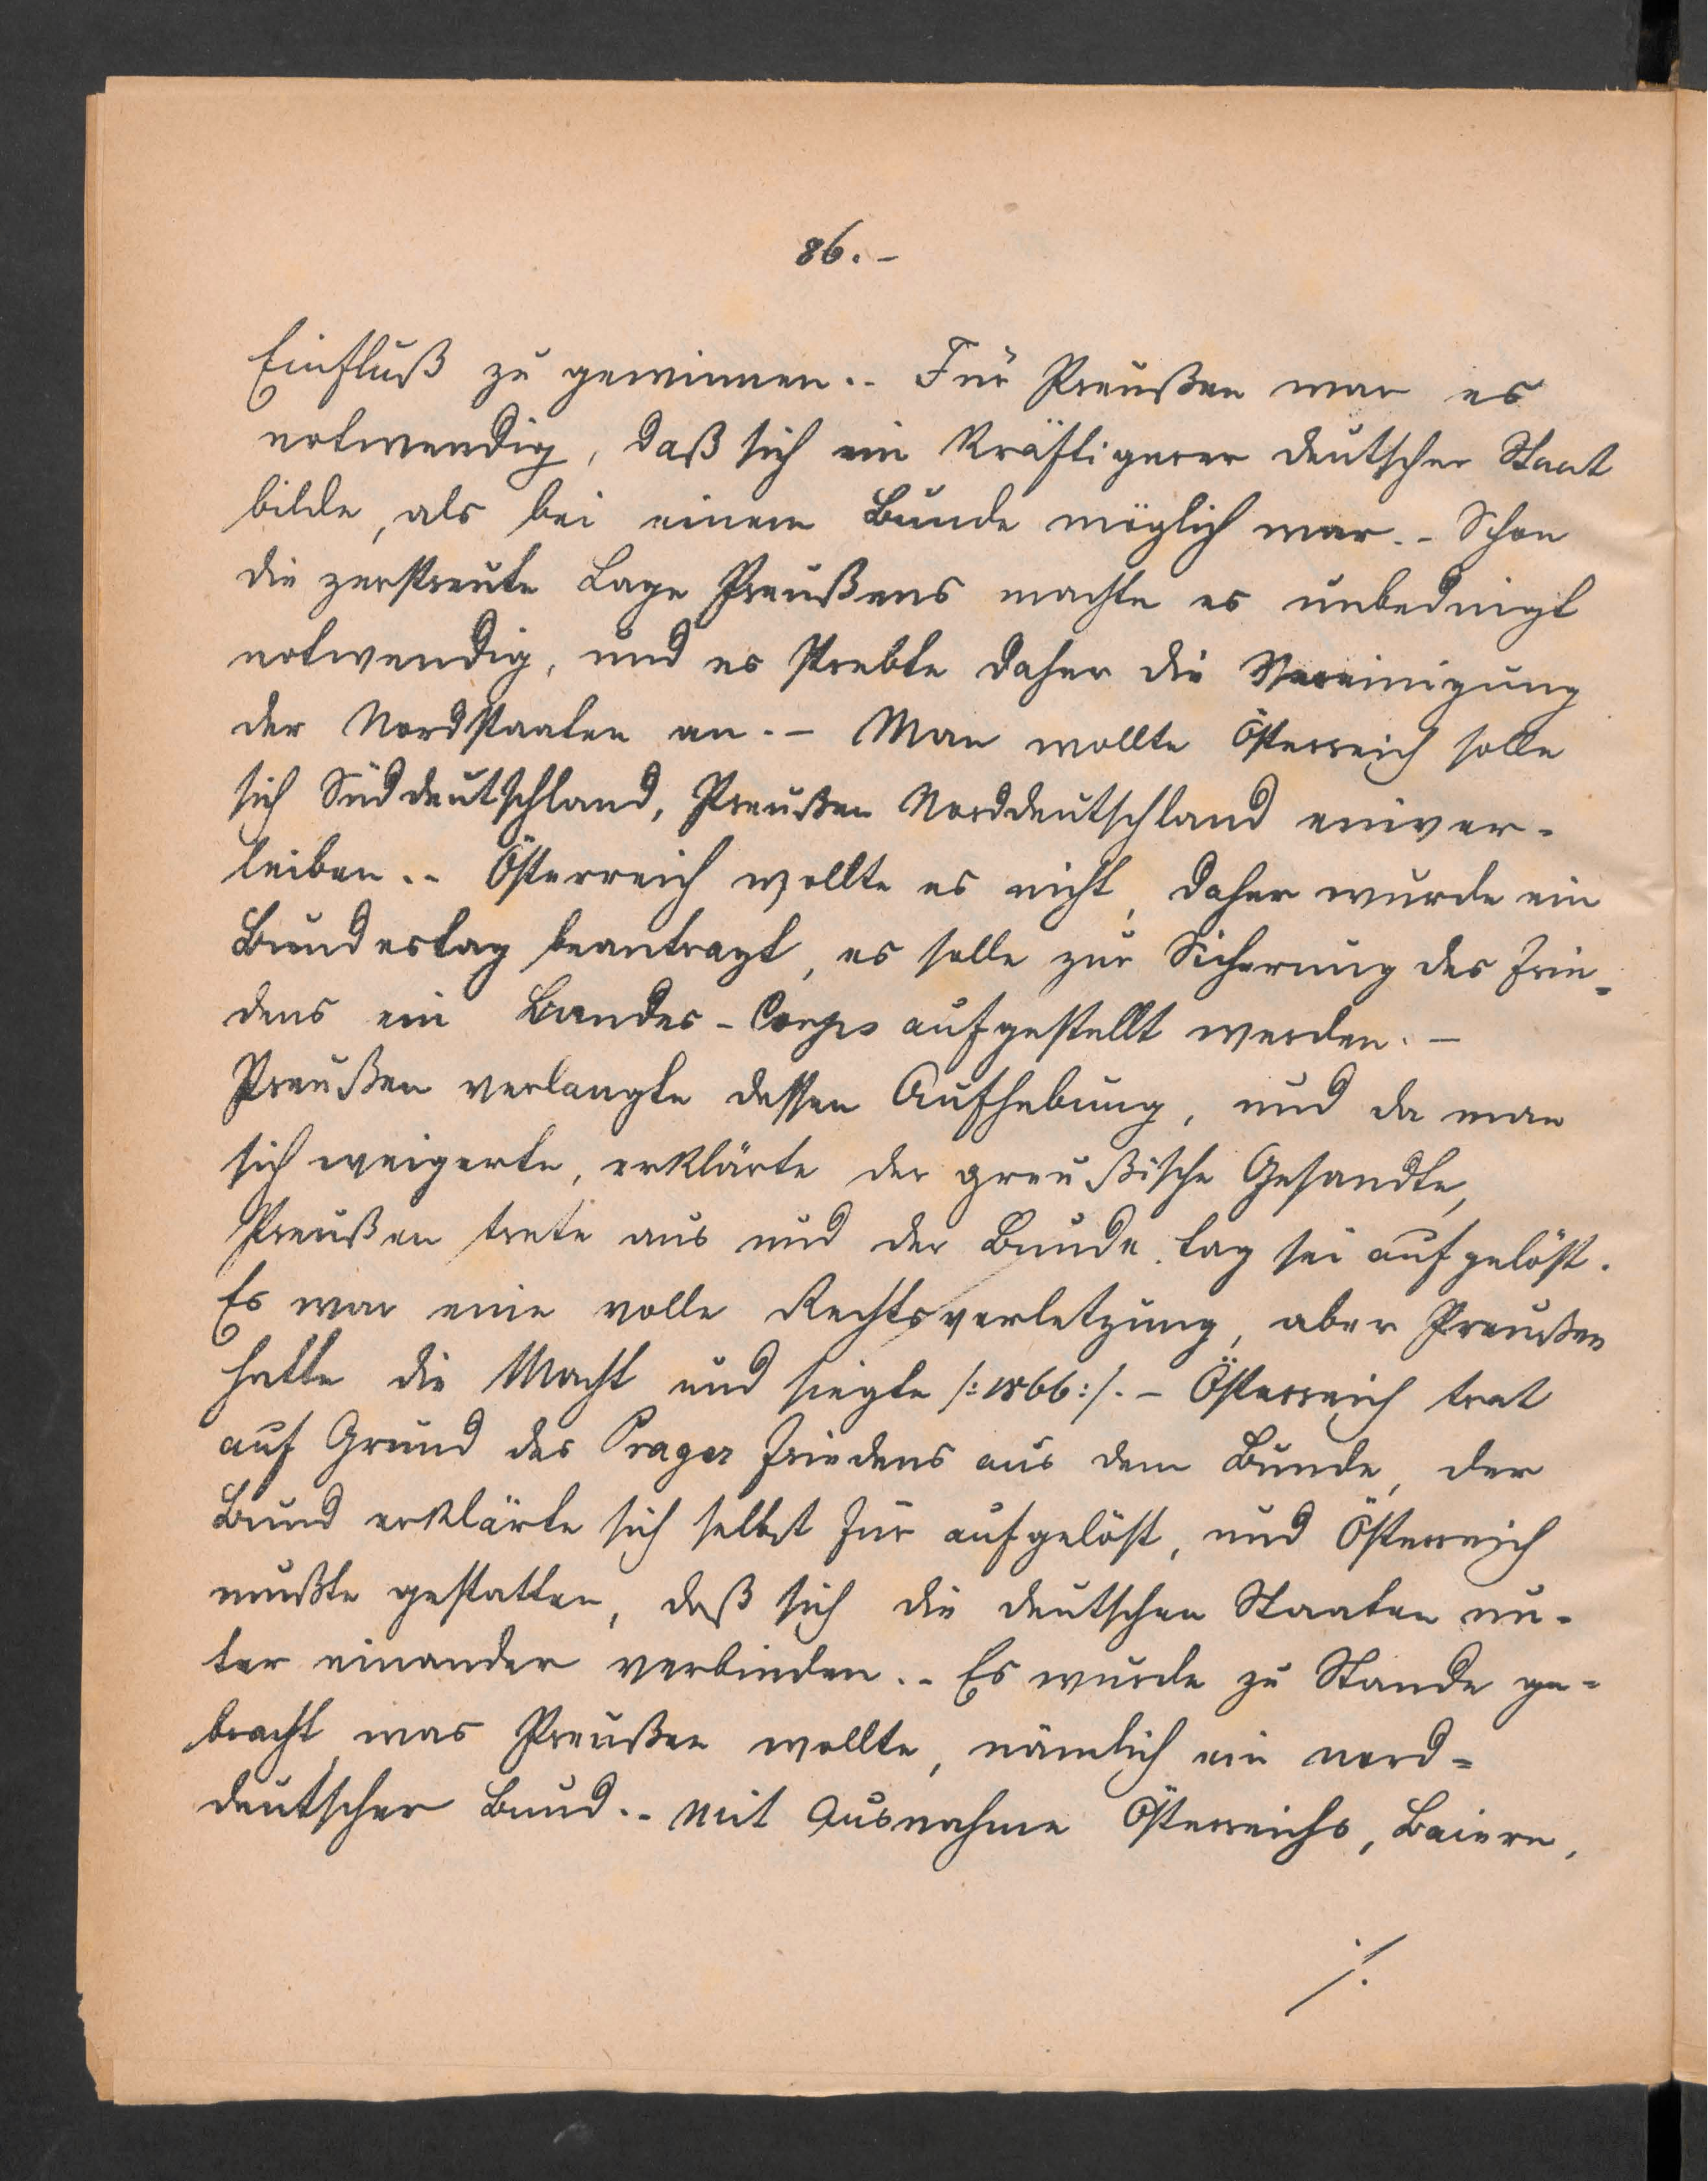 86.-
Einfluß zu gewinnen.- Für Preußen war es
notwendig, daß sich ein kräftigerer deutscher Staat
bilde, als bei einem Bunde möglich war.- Schon
die zerstreute Lage Preußens machte es unbedingt
notwendig, und es strebte daher die Vereinigung
der Nordstaaten an.- Man wollte Österreich solle
sich Süddeutschland, Preußen Norddeutschland einver-
leiben.- Österreich wollte es nicht, daher wurde ein
Bundestag beantragt, es solle zur Sicherung des Frie-
dens ein Bundes-Corps aufgestellt werden.-
Preußen verlangte dessen Aufhebung, und da man
sich weigerte, erklärte der preußische Gesandte,
Preußen trete aus und der Bundestag sei aufgelöst.
Es war eine volle Rechtsverletzung, aber Preußen
hatte die Macht und siegte /:1866:/.- Österreich trat
auf Grund des Prager Friedens aus dem Bunde, der
Bund erklärte sich selbst für aufgelöst, und Österreich
mußte gestatten, daß sich die deutschen Staaten un-
ter einander verbinden.- Es wurde zu Stande ge-
bracht, was Preußen wollte, nämlich ein nord-
deutscher Bund.- Mit Ausnahme Österreichs, Baiern,
./.